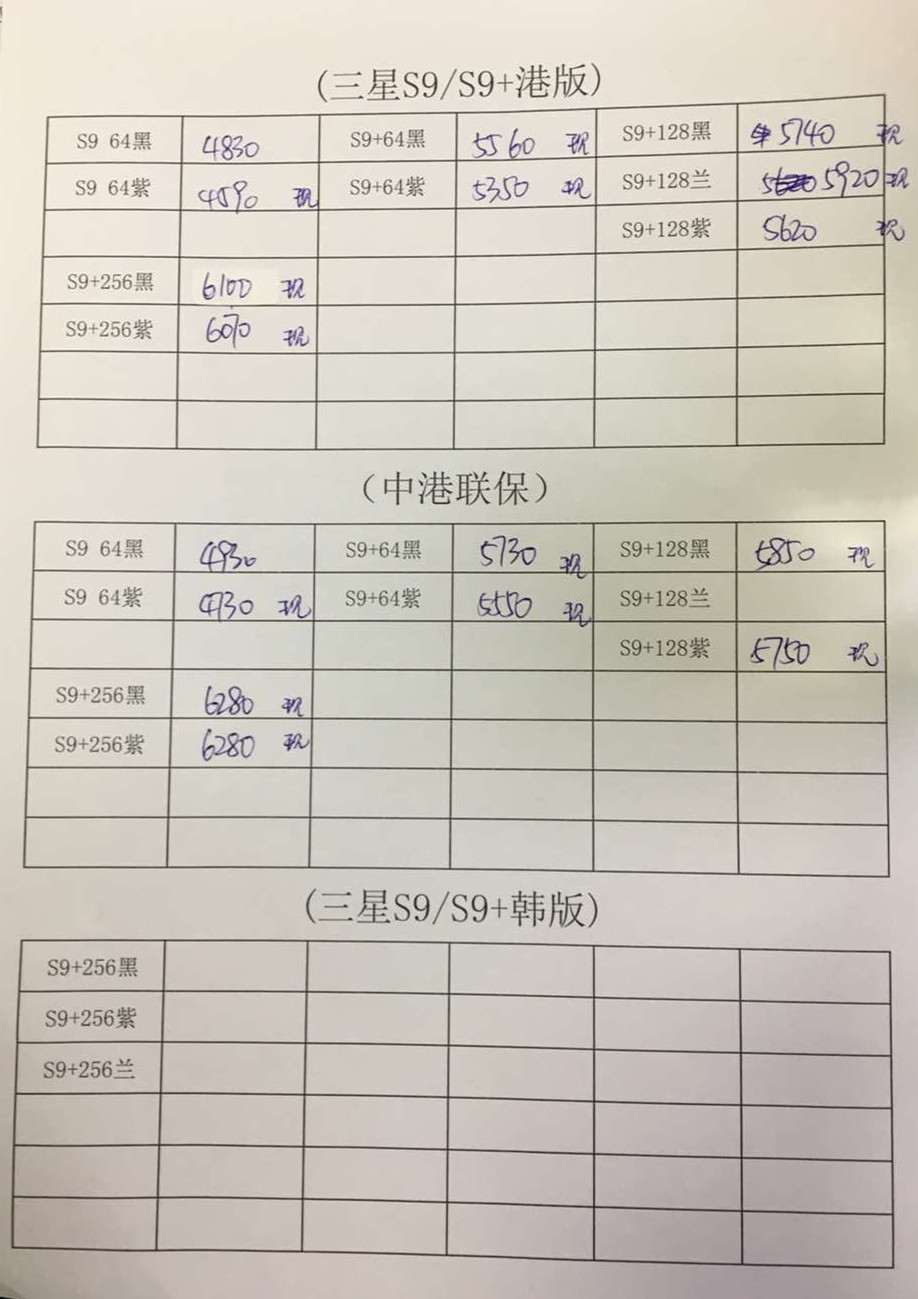 (三星S9/S9+港版)
S9 64黑 4830 S9+64黑 5560 现 S9+128黑 5740 现
S9 64紫 4590 现 S9+64紫 5350 现 S9+128兰 5920 现
S9+128紫 5620 现
S9+256黑 6100 现
S9+256紫 6070 现
（中港联保）
S9 64黑 4930 S9+64黑 5730 现 S9+128黑 5850 现
S9 64紫 4730 现 S9+64紫 5550 现 S9+128兰
S9+128紫 5750 现
S9+256黑 6280 现
S9+256紫 6280 现
(三星S9/S9+韩版)
S9+256黑
S9+256紫
S9+256兰